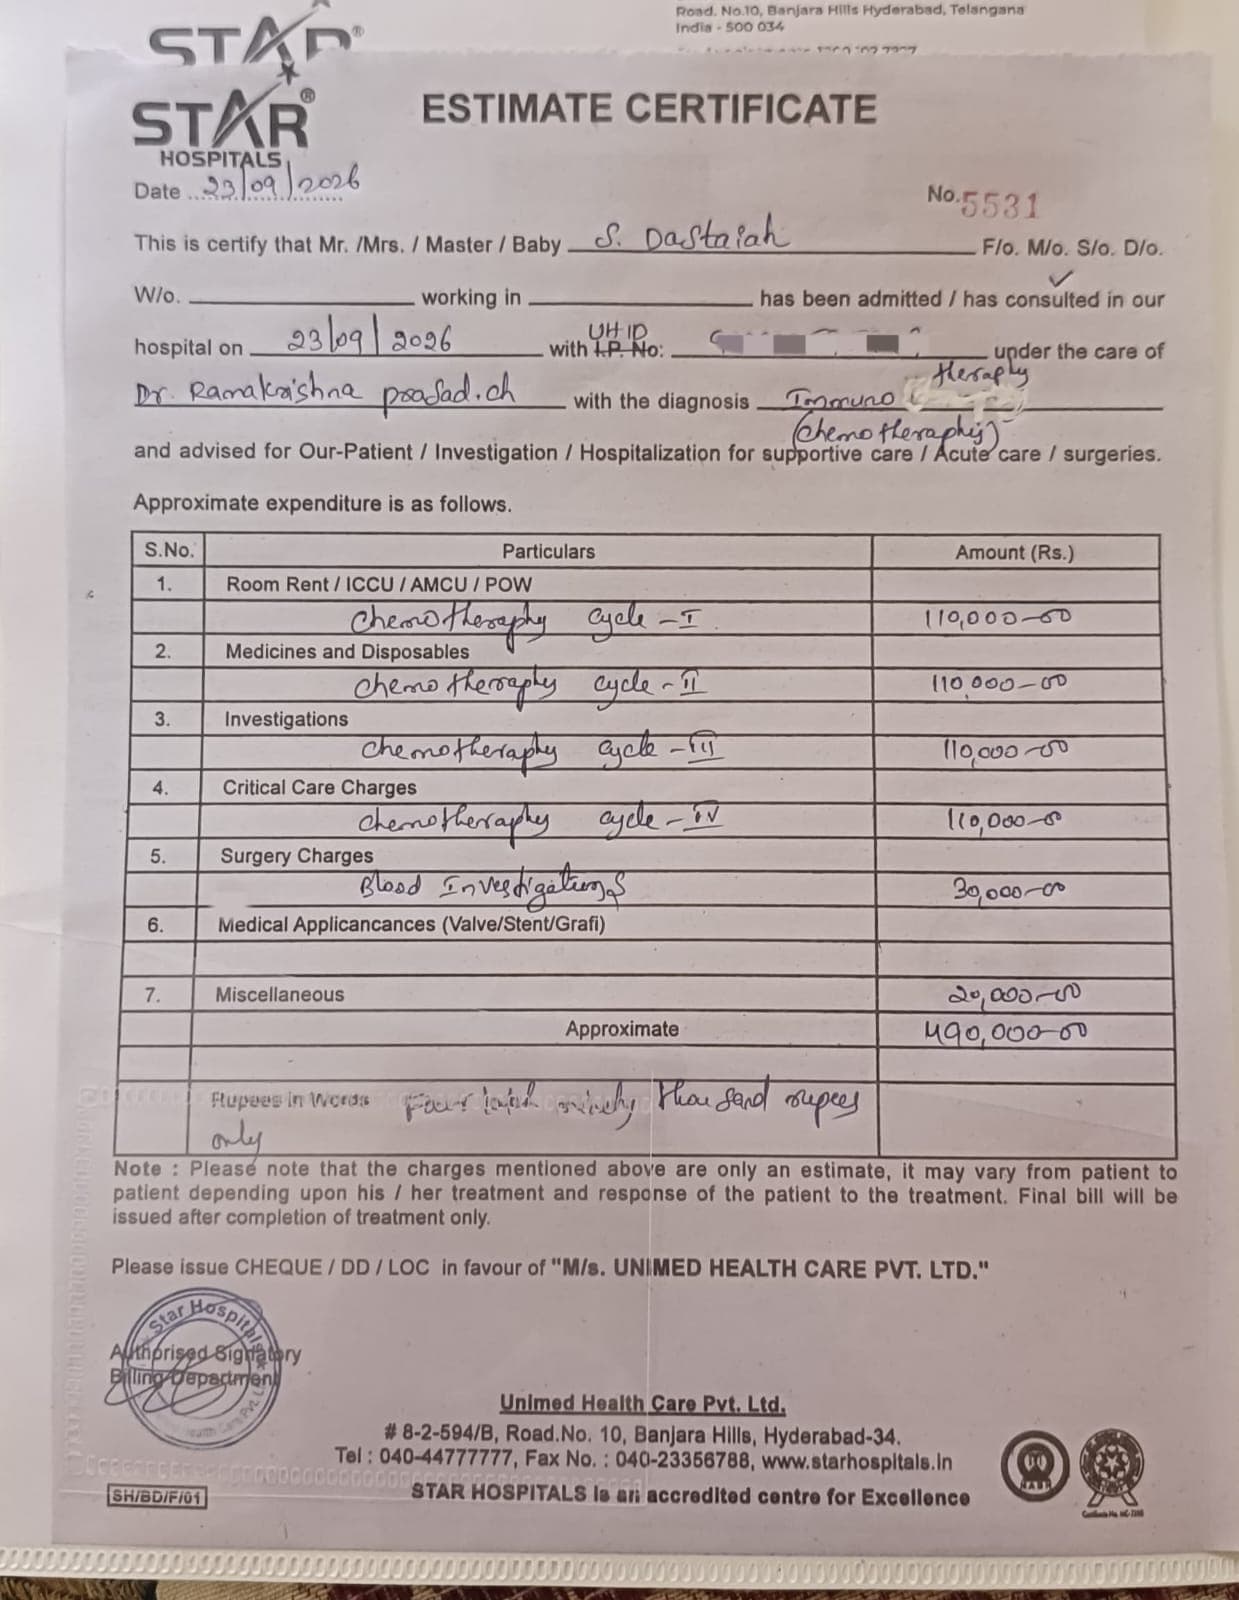 Road. No.10, Banjara Hills Hyderabad, Telangana
India - 500 034
STAR
STAR
HOSPITALS
ESTIMATE CERTIFICATE
Date 23/09/2026
No. 5531
This is certify that Mr. /Mrs. / Master / Baby S. Dastaiah F/o. M/o. S/o. D/o.
W/o. working in has been admitted / has consulted in our
hospital on 23/09/2026 with I.P. No: UHID under the care of
Dr. Ramakrishna prasad.ch with the diagnosis Immuno theraphy
(Chemotheraphy)
and advised for Our-Patient / Investigation / Hospitalization for supportive care / Acute care / surgeries.
Approximate expenditure is as follows.
S.No. Particulars Amount (Rs.)
1. Room Rent / ICCU / AMCU / POW
Chemotheraphy cycle - I 110,000-00
2. Medicines and Disposables
Chemotheraphy cycle - II 110,000-00
3. Investigations
Chemotheraphy cycle - III 110,000-00
4. Critical Care Charges
Chemotheraphy cycle - IV 110,000-00
5. Surgery Charges
Blood Investigations 30,000-00
6. Medical Applicancances (Valve/Stent/Grafi)
7. Miscellaneous 20,000-00
Approximate 490,000-00
Rupees in Words Four lakh ninety thousand rupees
only
Note : Please note that the charges mentioned above are only an estimate, it may vary from patient to
patient depending upon his / her treatment and response of the patient to the treatment. Final bill will be
issued after completion of treatment only.
Please issue CHEQUE / DD / LOC in favour of "M/s. UNIMED HEALTH CARE PVT. LTD."
Star Hospitals
Authorised Signatory
Billing Department
Unimed Health Care Pvt. Ltd.
# 8-2-594/B, Road.No. 10, Banjara Hills, Hyderabad-34.
Tel : 040-44777777, Fax No. : 040-23356788, www.starhospitals.in
STAR HOSPITALS is an accredited centre for Excellence
SH/BD/F/01